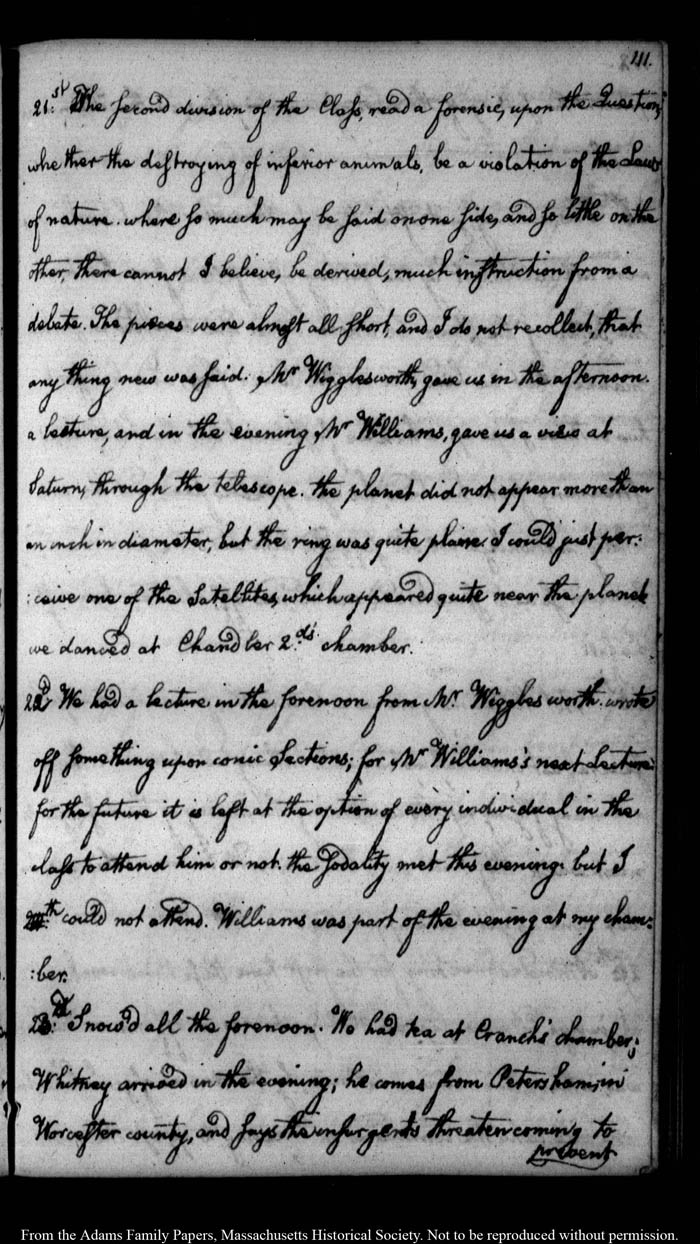 111.
21:st The second division of the Class, read a forensic, upon the Question,
whether the destroying of inferior animals, be a violation of the Laws
of nature. where so much may be said on one side, and so little on the
other, there cannot I believe, be derived, much instruction from a
debate. The pieces were almost all short, and I do not recollect, that
any thing new was said. Mr Wigglesworth, gave us in the afternoon.
a lecture, and in the evening Mr Williams, gave us a view at
Saturn, through the telescope. the planet did not appear more than
an inch in diameter, but the ring was quite plain. I could just per:
:ceive one of the Satellites, which appeared quite near the planet
we danced at Chandler 2.ds' chamber.
22d We had a lecture in the forenoon from Mr. Wigglesworth. wrote
off something upon conic Sections; for Mr Williams's next Lecture.
for the future it is left at the option of every individual in the
class to attend him or not. the Sodality met this evening. but I
could not attend. Williams was part of the evening at my cham:
:ber.
23:d Snow'd all the forenoon. We had tea at Cranch's chamber;
Whitney arrived in the evening; he comes from Petersham, in
Worcester county, and says the insurgents threaten coming to
prevent
From the Adams Family Papers, Massachusetts Historical Society. Not to be reproduced without permission.